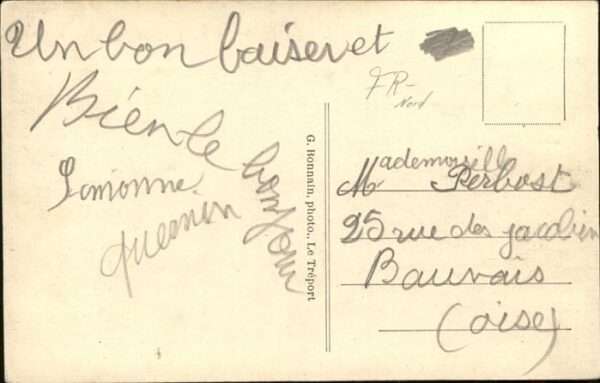 Un bon baiser et
Bien le bonjour
Simonne
quesnen
FR-
Nord
G. Honnain, photo., Le Tréport
Mademoiselle
Perbost
25 rue des jacobin
Bauvais
(oise)